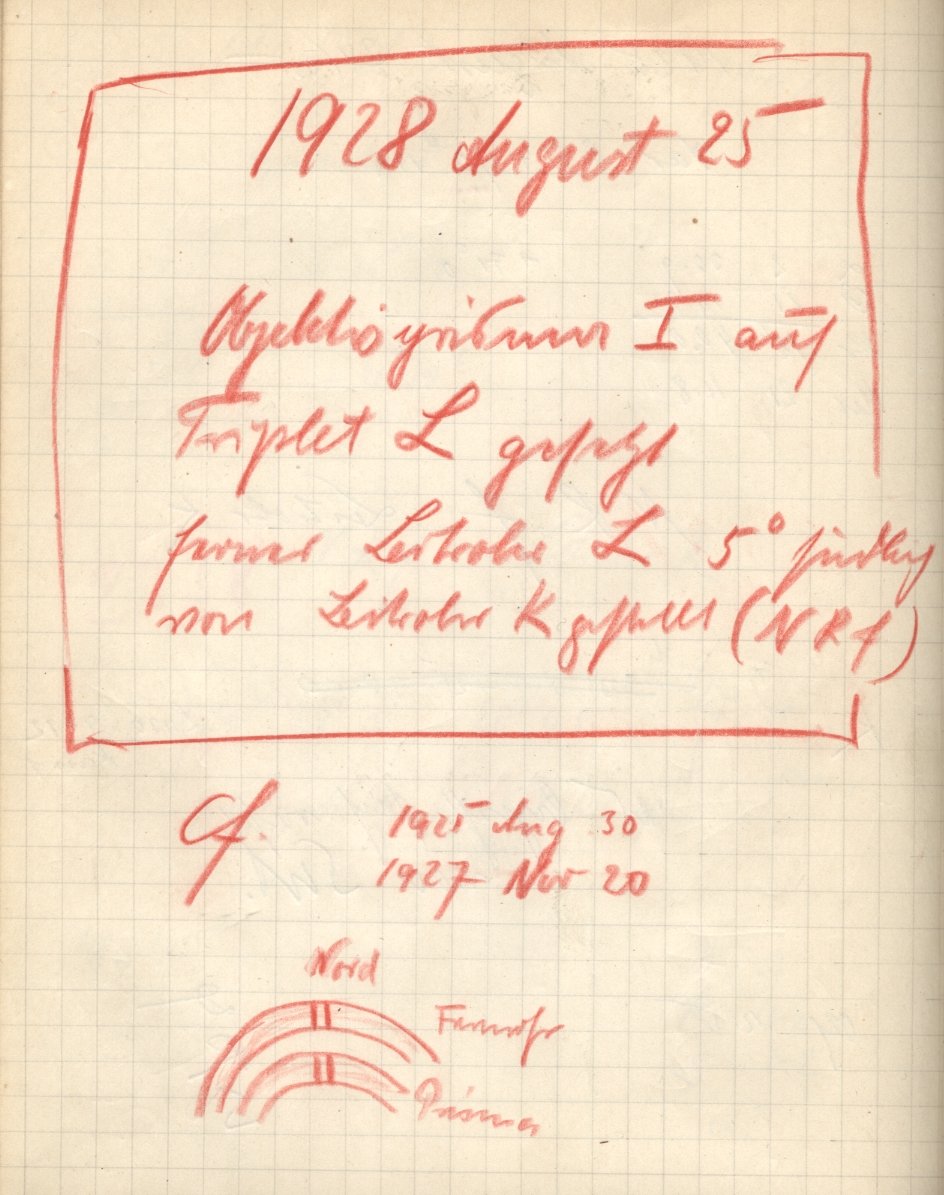 1928 August 25
Objektivprisma I auf
Triplet L gesetzt
ferner Leitrohr L 5° südlich
von Leitrohr K gestellt (NRf)
Cf. 1925 Aug 30
1927 Nov 20
Nord
Fernrohr
Prisma